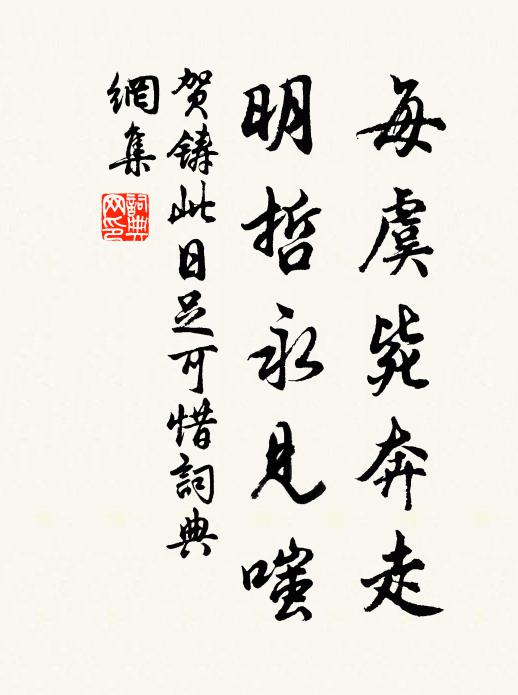 每虞毙奔走
明哲永見嗤
贺鑄此日足可惜詞典
網集
詞典网印